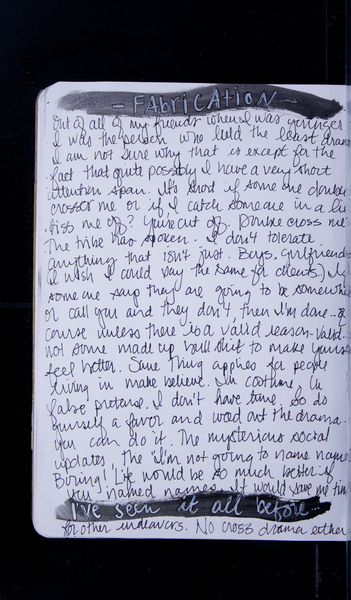 - FAbriCATiON -
Out of all of my friends when I was younger
I was the person who held the least drama
I am not sure why that is except for the
fact that quite possibly I have a very short
attention span. It's short if someone double
crosses me or if I catch someone in a lie
Piss me off? You're cut off. Double cross me
The tribe has spoken. I don't tolerate
anything that isn't just. Boys, girlfriends
(I wish I could say the same for clients) If
someone says they are going to be somewhere
or call you and they don't, then I'm done - of
course unless there is a valid reason. Valid -
not some made up bullshit to make yourse
feel better. Same thing applies for people
living in make believe. In costume. In
false pretense. I don't have time. So do
yourself a favor and weed out the drama.
You can do it. The mysterious social
updates, the "I'm not going to name name
Boring! Life would be so much better if
you named names. It would save me time
I've seen it all before...
for other endeavors. No cross drama either